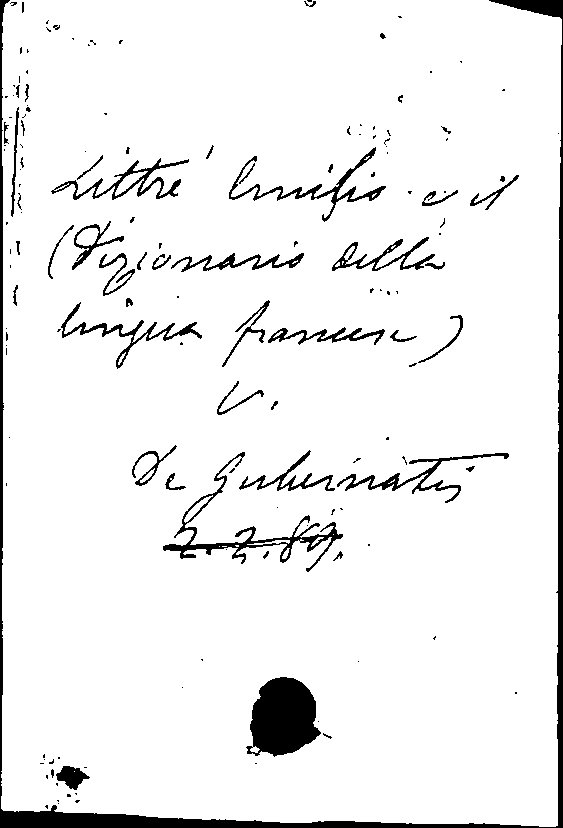 Littré Emilio e il
(Dizionario della
lingua francese)
V.
De Gubernatis
2.2.89.